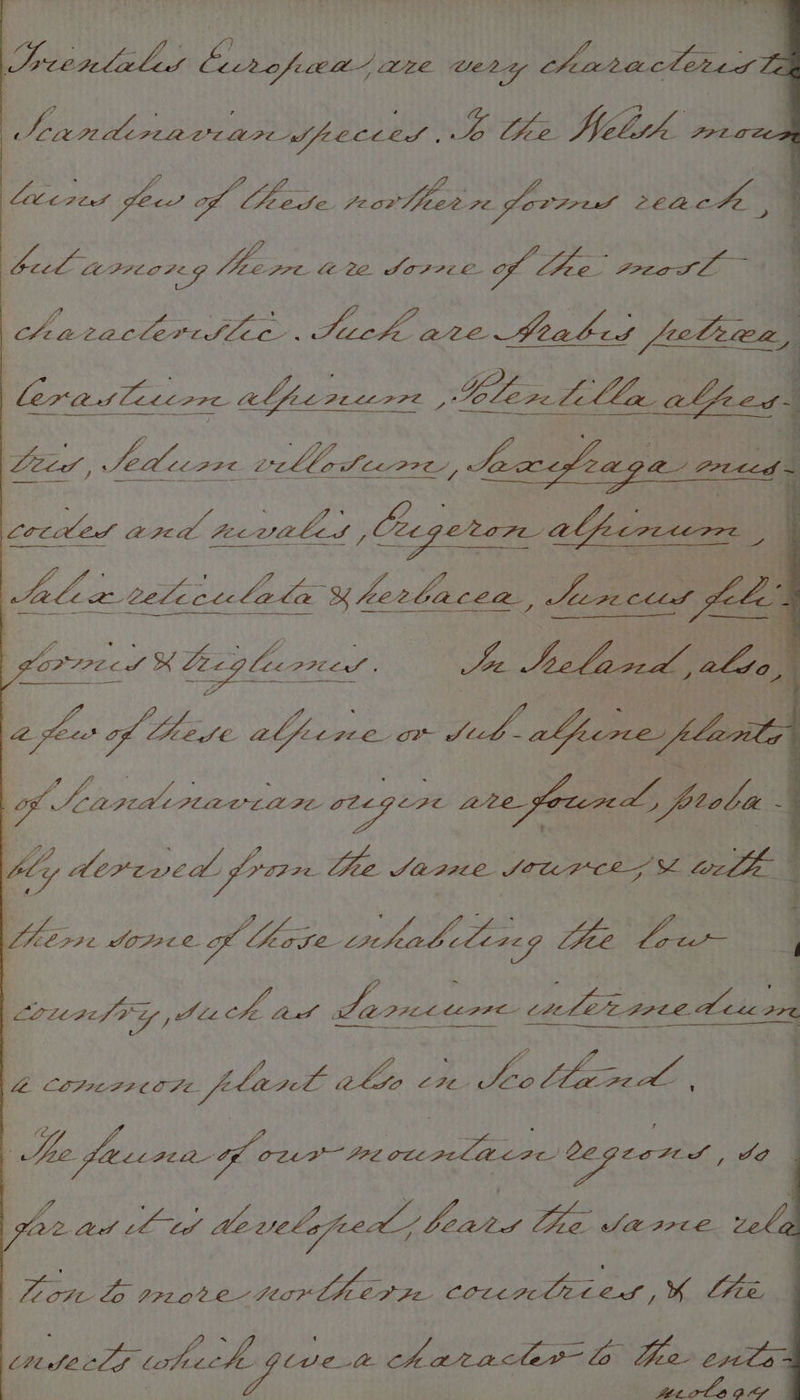 Trientalis Europæa, are very characteristic
Scandinavian species. To the Welsh moun
tains few of these northern forms reach,
but among them are some of the most
characteristic. Such are Arabis petræa,
Cerastium alpinum, Potentilla alpes-
tris, Sedum villosum, Saxifraga mus-
coides and nivalis, Erigeron alpinum,
Salix reticulata & herbacea, Juncus fili-
formis & triglumis. In Ireland, also,
a few of these alpine or sub-alpine plants
of Scandinavian origin are found, proba-
bly derived from the same source, & with
them some of those inhabiting the low
country, such as Lamium intermedium
a common plant also in Scotland.
The fauna of our mountain regions, so
far as it is developed, bears the same rela
tion to more northern countries, & the
insects which give a character to the ento-
mology